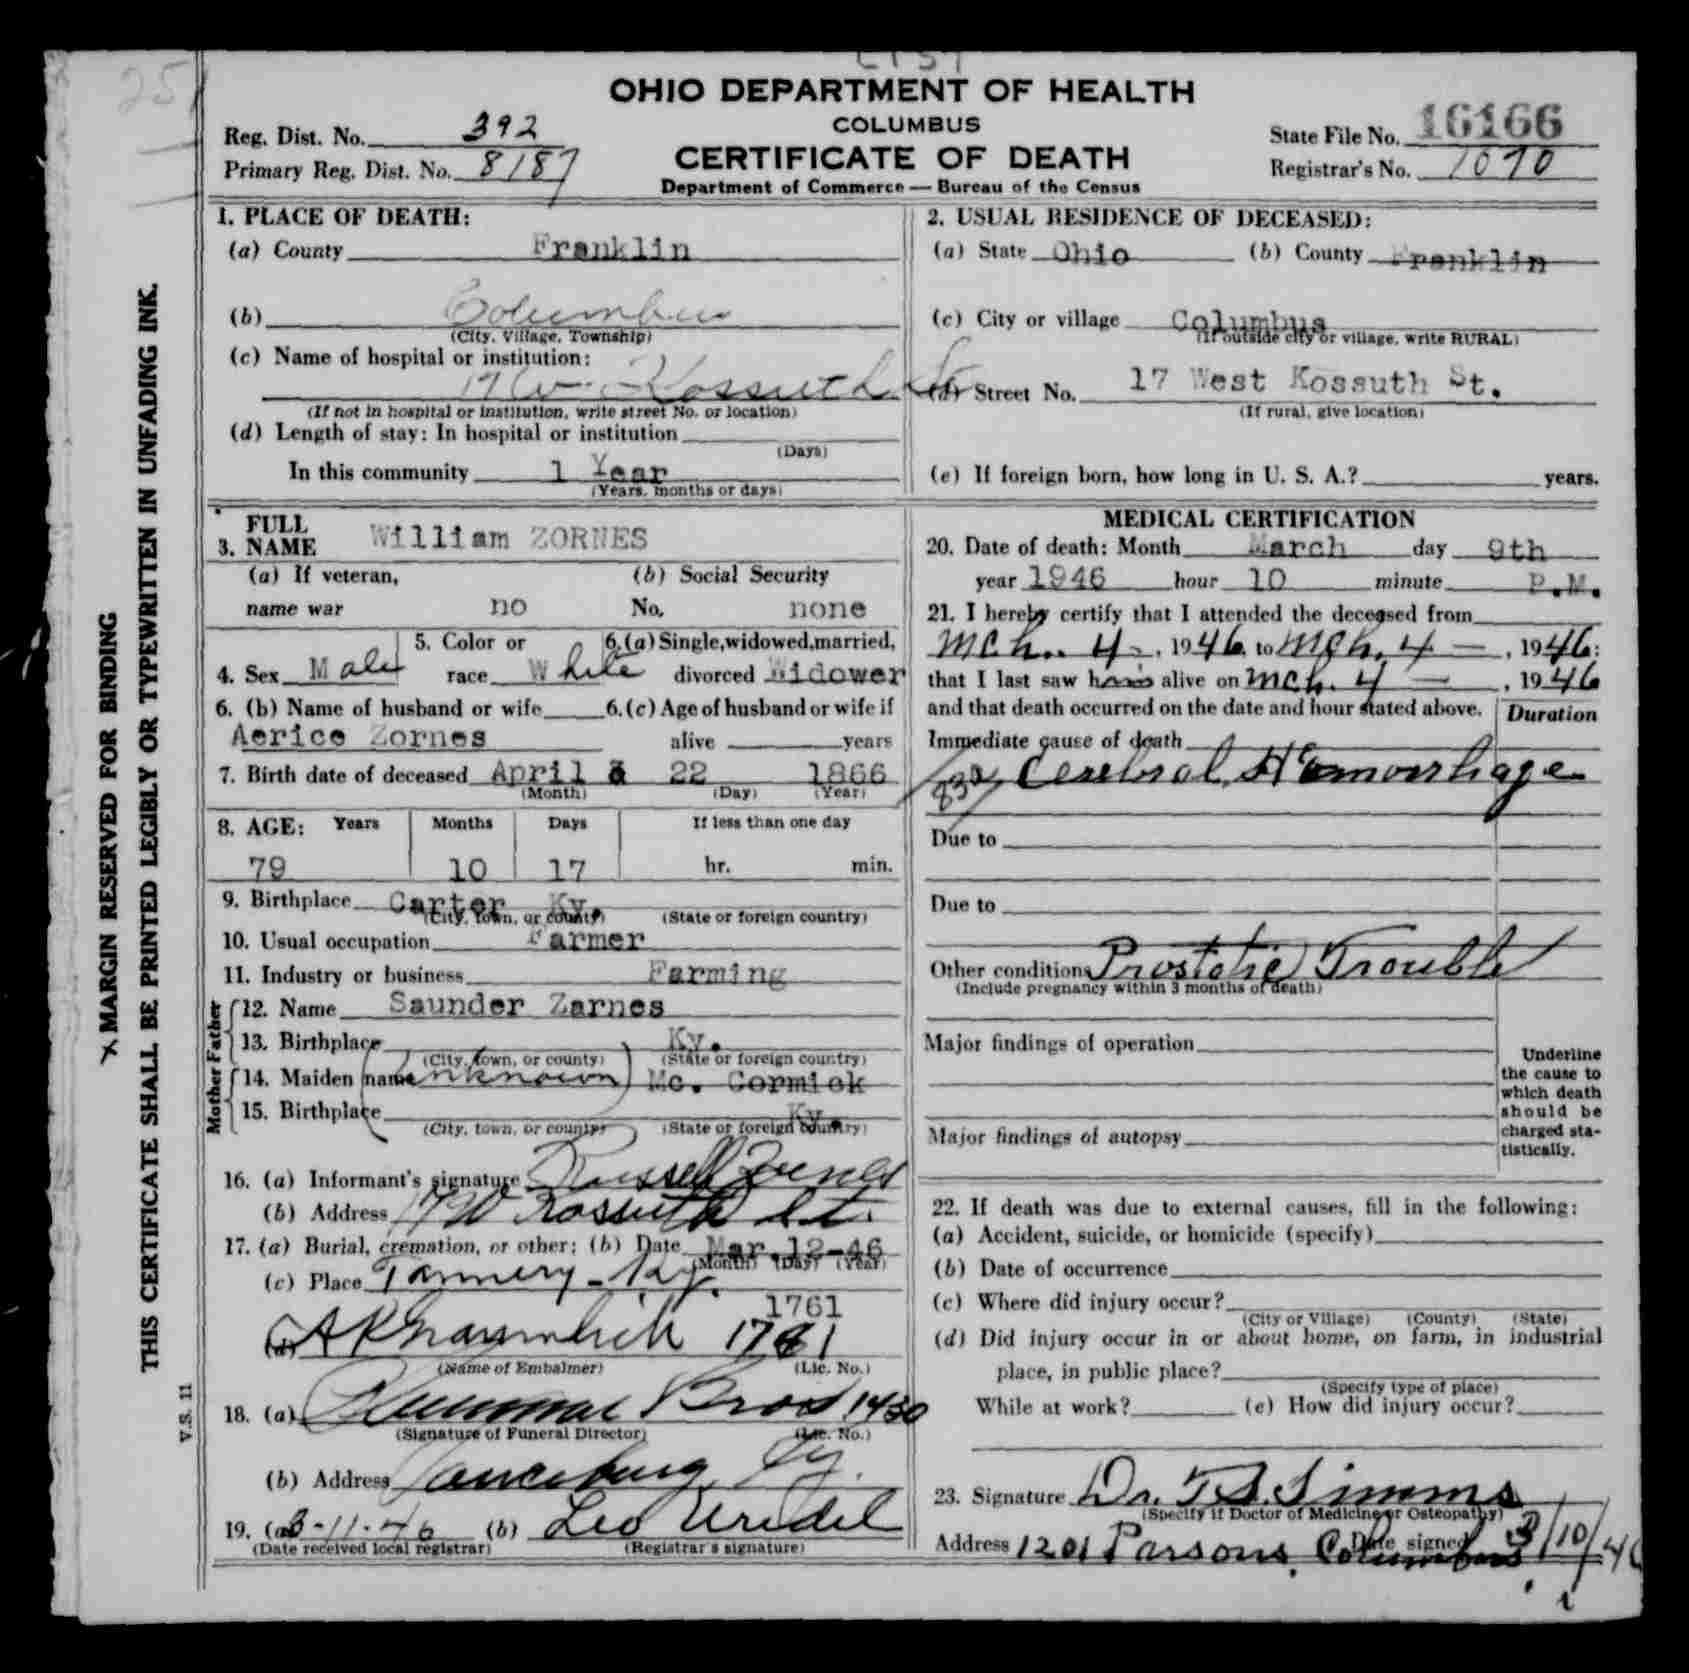 25
OHIO DEPARTMENT OF HEALTH
COLUMBUS
CERTIFICATE OF DEATH
Department of Commerce — Bureau of the Census
Reg. Dist. No. 392
Primary Reg. Dist. No. 8187
State File No. 16166
Registrar's No. 1070
MARGIN RESERVED FOR BINDING
THIS CERTIFICATE SHALL BE PRINTED LEGIBLY OR TYPEWRITTEN IN UNFADING INK.
V.S. 11
1. PLACE OF DEATH:
(a) County Franklin
(b) Columbus
(City, Village, Township)
(c) Name of hospital or institution:
17 W. Kossuth St
(If not in hospital or institution, write street No. or location)
(d) Length of stay: In hospital or institution
(Days)
In this community 1 Year
(Years, months or days)
2. USUAL RESIDENCE OF DECEASED:
(a) State Ohio (b) County Franklin
(c) City or village Columbus
(If outside city or village, write RURAL)
(d) Street No. 17 West Kossuth St.
(If rural, give location)
(e) If foreign born, how long in U. S. A.? years.
3. FULL NAME William ZORNES
(a) If veteran, name war no
(b) Social Security No. none
4. Sex Male
5. Color or race White
6. (a) Single, widowed, married, divorced Widower
6. (b) Name of husband or wife
Aerice Zornes
6. (c) Age of husband or wife if alive years
7. Birth date of deceased April 22 1866
(Month) (Day) (Year)
8. AGE: Years Months Days If less than one day
79 10 17 hr. min.
9. Birthplace Carter Ky.
(City, town, or county) (State or foreign country)
10. Usual occupation Farmer
11. Industry or business Farming
Father
12. Name Saunder Zarnes
13. Birthplace Ky.
(City, town, or county) (State or foreign country)
Mother
14. Maiden name (unknown) Mc. Cormick
15. Birthplace Ky.
(City, town, or county) (State or foreign country)
16. (a) Informant's signature Russell Zornes
(b) Address 17 W Kossuth St.
17. (a) Burial, cremation, or other; (b) Date Mar. 12-46
(Month) (Day) (Year)
(c) Place Tannery - Ky.
1761
(d) 1761
(Name of Embalmer) (Lic. No.)
18. (a) Plummer Bros 1430
(Signature of Funeral Director) (Lic. No.)
(b) Address Vanceburg Ky.
19. (a) 3-11-46 (b) Leo
(Date received local registrar) (Registrar's signature)
MEDICAL CERTIFICATION
20. Date of death: Month March day 9th
year 1946 hour 10 minute P.M.
21. I hereby certify that I attended the deceased from
Mch. 4 -, 1946, to Mch. 4 —, 1946;
that I last saw him alive on Mch. 4 —, 1946
and that death occurred on the date and hour stated above.
Duration
Immediate cause of death
Cerebral Hemorrhage
Due to
Due to
Other conditions Prostatic Trouble
(Include pregnancy within 3 months of death)
Major findings of operation
Major findings of autopsy
Underline the cause to which death should be charged statistically.
22. If death was due to external causes, fill in the following:
(a) Accident, suicide, or homicide (specify)
(b) Date of occurrence
(c) Where did injury occur?
(City or Village) (County) (State)
(d) Did injury occur in or about home, on farm, in industrial
place, in public place?
(Specify type of place)
While at work? (e) How did injury occur?
23. Signature Dr. T. S. Simms
(Specify if Doctor of Medicine or Osteopathy)
Address 1201 Parsons, Columbus Date signed 3/10/46